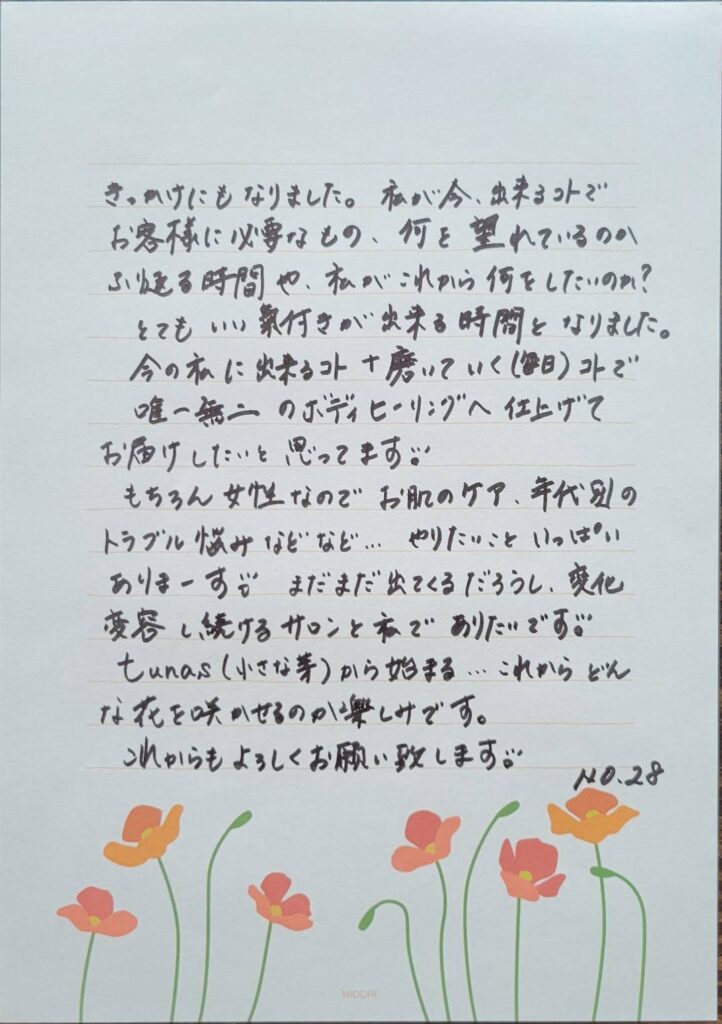 きっかけにもなりました。私が今、出来るコトで
お客様に必要なもの、何を望れているのか
ふり返る時間や、私がこれから何をしたいのか?
とてもいい氣付きが出来る時間となりました。
今の私に出来るコト+磨いていく(毎日)コトで
唯一無二のボディヒーリングへ仕上げて
お届けしたいと思ってます
もちろん女性なのでお肌のケア、年代別の
トラブル悩みなどなど… やりたいこといっぱい
ありまーす まだまだ出てくるだろうし、変化
変容し続けるサロンと私でありたいです。
tunas(小さな芽)から始まる…これからどん
な花を咲かせるのか楽しみです。
これからもよろしくお願い致します
NO.28
MIDORI